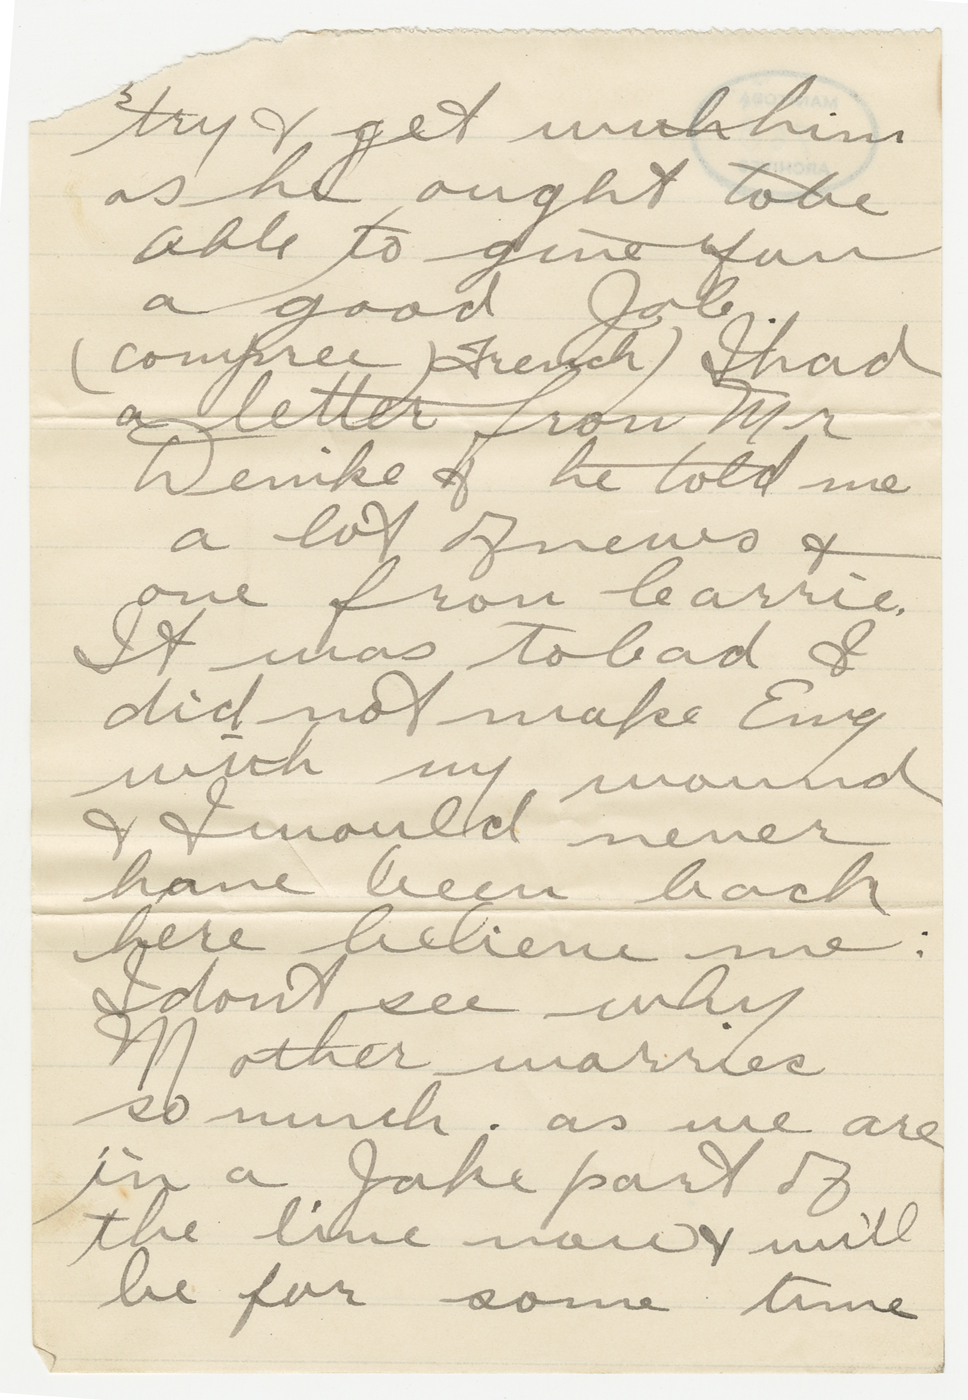 try & get with him
as he ought to be
able to give you
a good Job.
(compree) French) I had
a letter from Mr
Denike & he told me
a lot of news &
one from Carrie.
It was to bad I
did not make Eng
with my wound
& I would never
have been back
here believe me:
I don't see why
Mother worries
so much. as we are
in a Jake part of
the line now & will
be for some time
MANITOBA
ARCHIVES